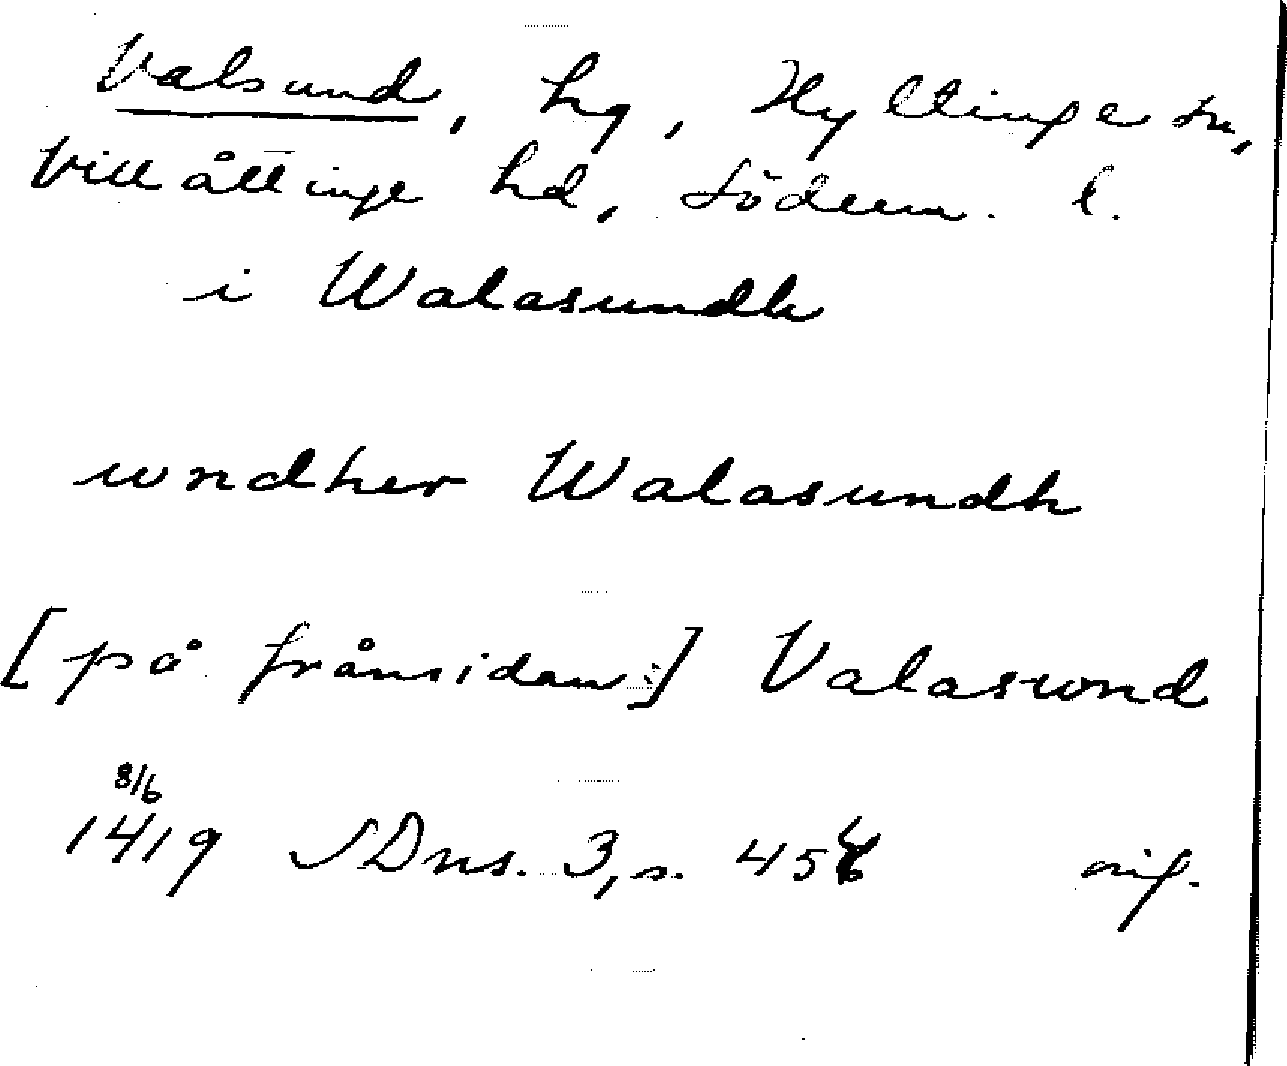 Valsund, hg, Hyltinge sn,
Villåttinge hd, Söderm. l.
i Walasundh
wndher Walasundh
[på frånsidan:] Valaswnd
8/6
1419 SDns. 3, s. 456 orig.